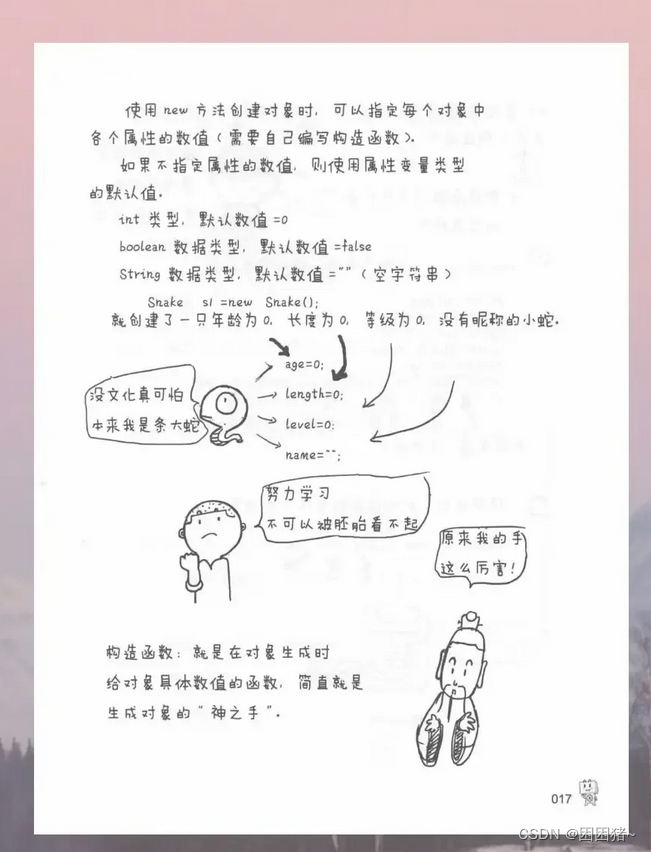 使用new方法创建对象时，可以指定每个对象中
各个属性的数值（需要自己编写构造函数）。
如果不指定属性的数值，则使用属性变量类型
的默认值.
int 类型，默认数值=0
boolean 数据类型，默认数值=false
String 数据类型，默认数值=""（空字符串）
Snake s1=new Snake();
就创建了一只年龄为0，长度为0，等级为0，没有昵称的小蛇.
age=0;
length=0;
level=0;
name="";
没文化真可怕
本来我是条大蛇
努力学习
不可以被胚胎看不起
原来我的手
这么厉害!
构造函数：就是在对象生成时
给对象具体数值的函数，简直就是
生成对象的"神之手".
017
CSDN @困困猪~